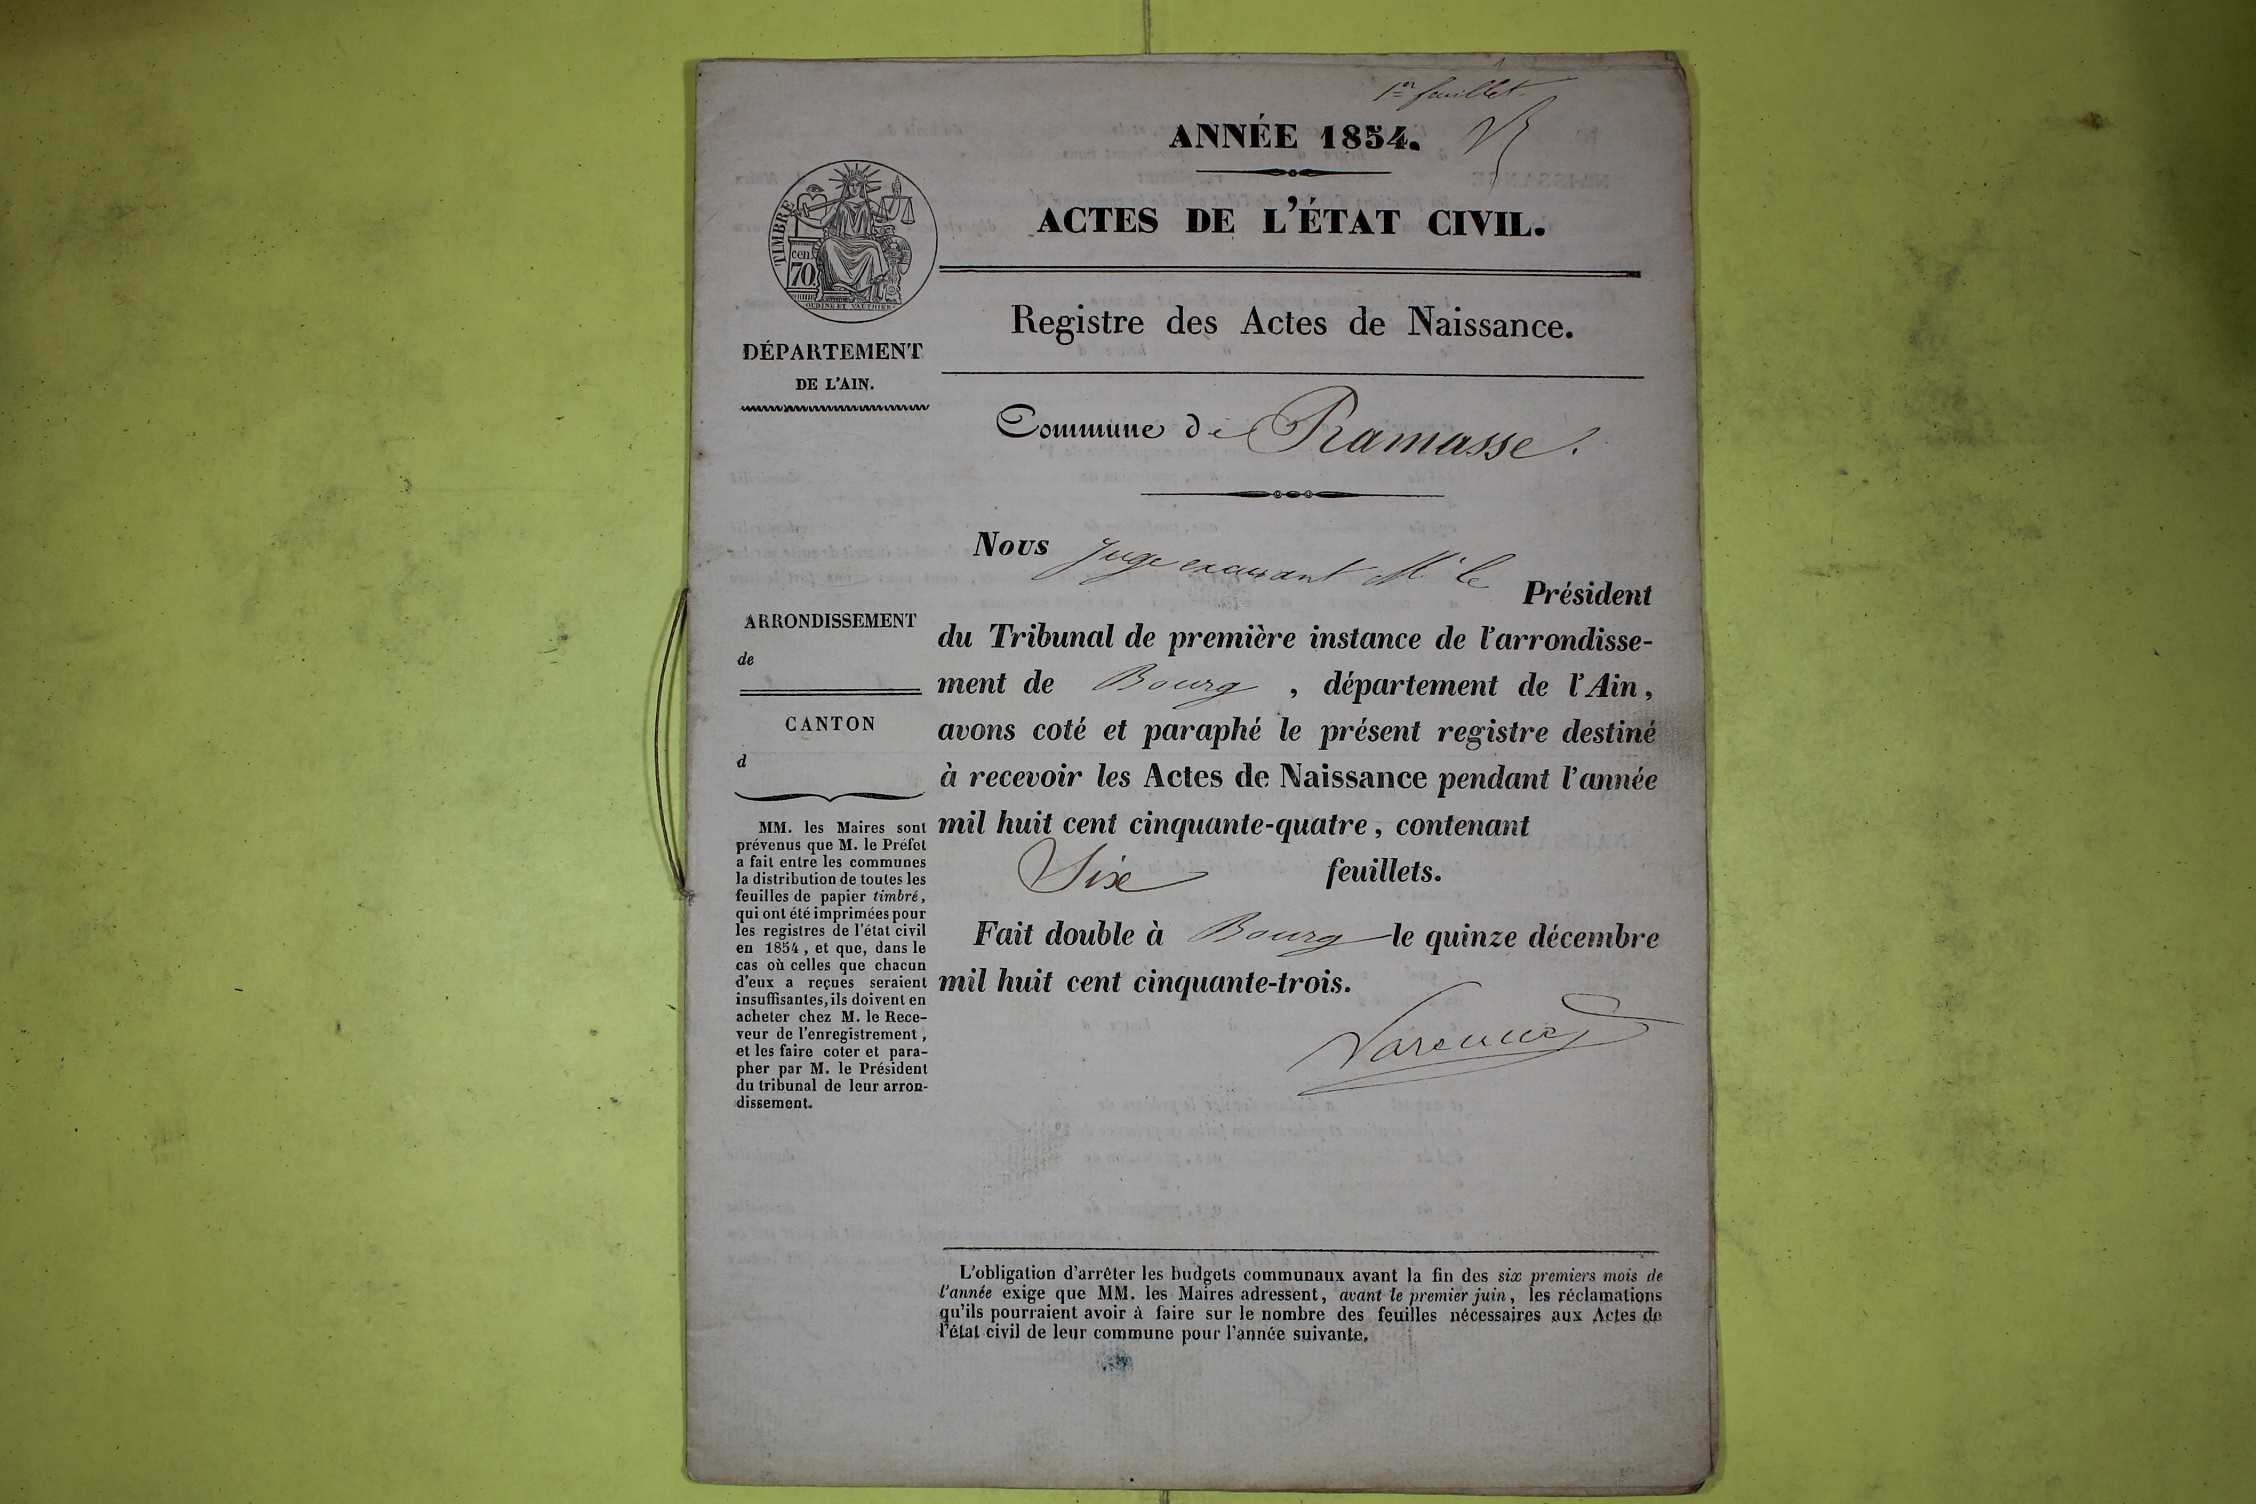 1er feuillet
ANNÉE 1854.
ACTES DE L'ÉTAT CIVIL.
TIMBRE
cen
70
OUDINÉ ET VAUTHIER
Registre des Actes de Naissance.
DÉPARTEMENT
DE L'AIN.
Commune de Ramasse.
Nous Juge excusant Mr le Président
du Tribunal de première instance de l'arrondisse-
ment de Bourg, département de l'Ain,
avons coté et paraphé le présent registre destiné
à recevoir les Actes de Naissance pendant l'année
mil huit cent cinquante-quatre, contenant
Six feuillets.
Fait double à Bourg le quinze décembre
mil huit cent cinquante-trois.
ARRONDISSEMENT
de
CANTON
d
MM. les Maires sont
prévenus que M. le Préfet
a fait entre les communes
la distribution de toutes les
feuilles de papier timbré,
qui ont été imprimées pour
les registres de l'état civil
en 1854, et que, dans le
cas où celles que chacun
d'eux a reçues seraient
insuffisantes, ils doivent en
acheter chez M. le Rece-
veur de l'enregistrement,
et les faire coter et para-
pher par M. le Président
du tribunal de leur arron-
dissement.
L'obligation d'arrêter les budgets communaux avant la fin des six premiers mois de
l'année exige que MM. les Maires adressent, avant le premier juin, les réclamations
qu'ils pourraient avoir à faire sur le nombre des feuilles nécessaires aux Actes de
l'état civil de leur commune pour l'année suivante.